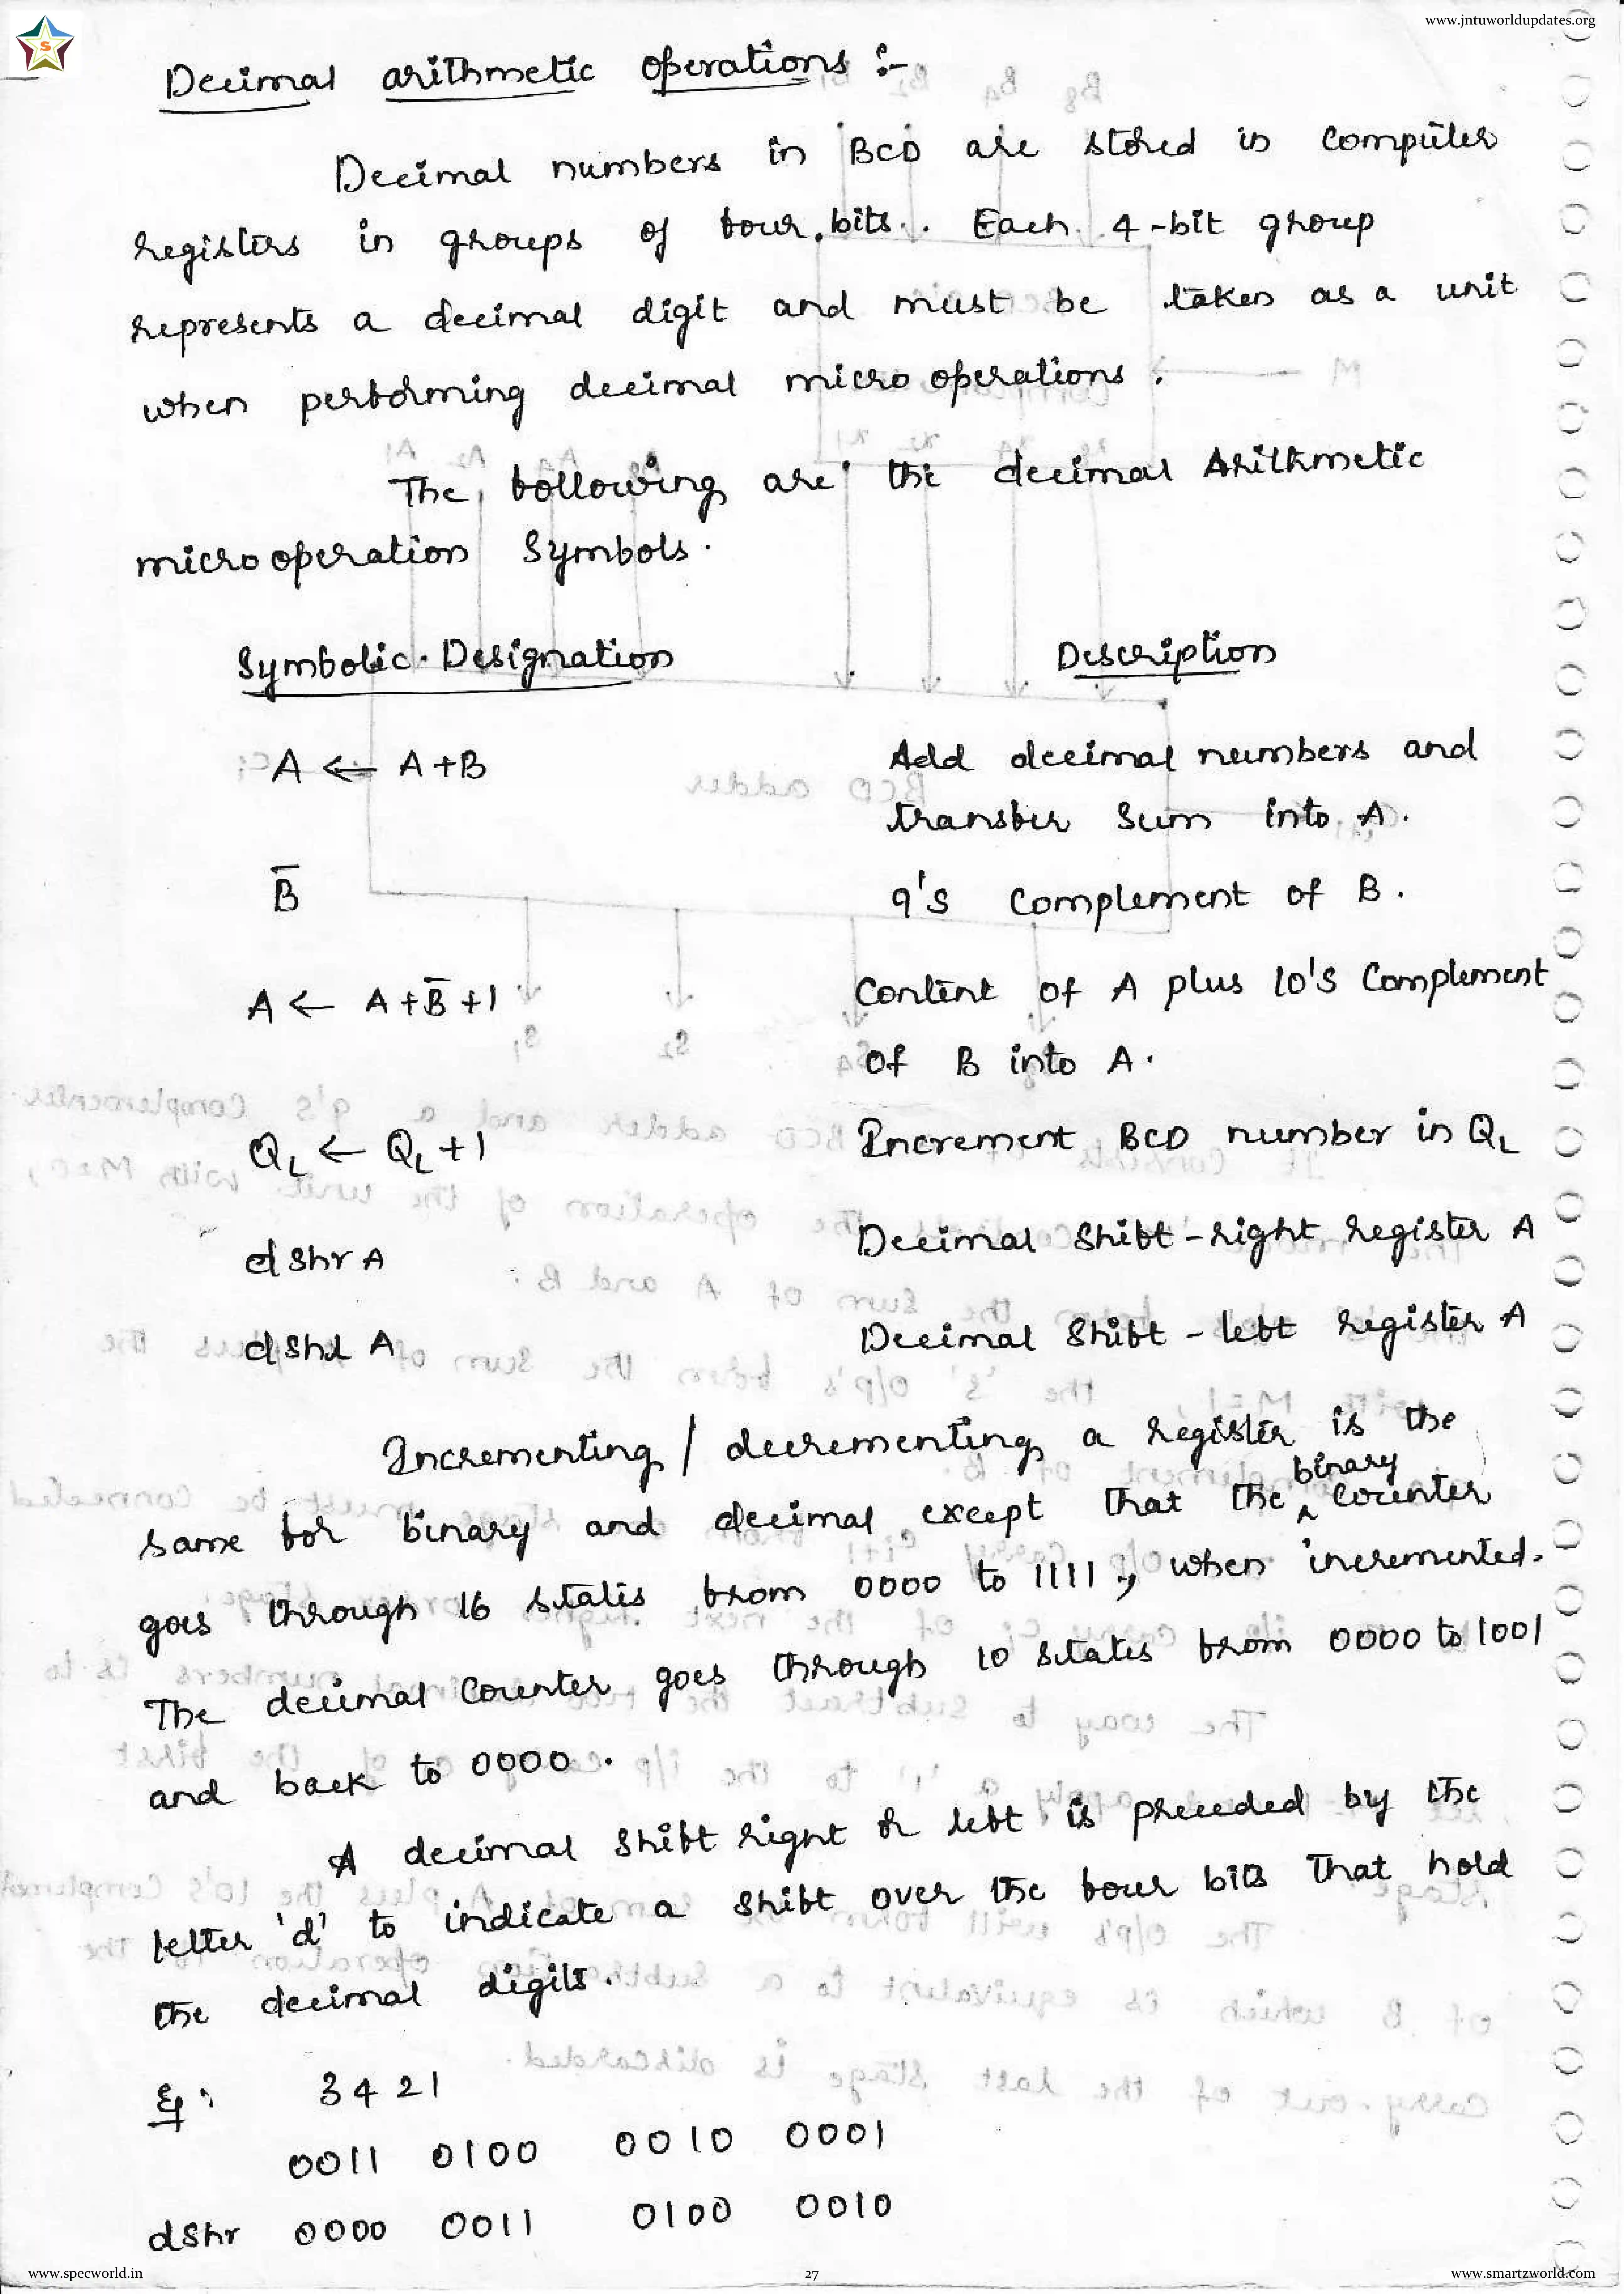 www.jntuworldupdates.org
S
Decimal arithmetic operations :-
Decimal numbers in BCD are stored in computer
registers in groups of four bits. Each 4-bit group
represents a decimal digit and must be taken as a unit
when performing decimal micro operations.
The following are the decimal Arithmetic
microoperation Symbols.
Symbolic Designation Description
A ← A+B Add decimal numbers and
transfer Sum into A.
B̅ 9's Complement of B.
A ← A+B̅+1 Content of A plus 10's Complement
of B into A.
QL ← QL+1 Increment BCD number in QL
dshr A Decimal Shift-right register A
dshl A Decimal Shift-left register A
Incrementing / decrementing a register is the
same for binary and decimal except that the binary counter
goes through 16 states from 0000 to 1111, when incremented.
The decimal counter goes through 10 states from 0000 to 1001
and back to 0000.
A decimal shift right or left is preceded by the
letter 'd' to indicate a shift over the four bits that hold
the decimal digits.
Eg: 3421
0011 0100 0010 0001
dshr 0000 0011 0100 0010
www.specworld.in 27 www.smartzworld.com